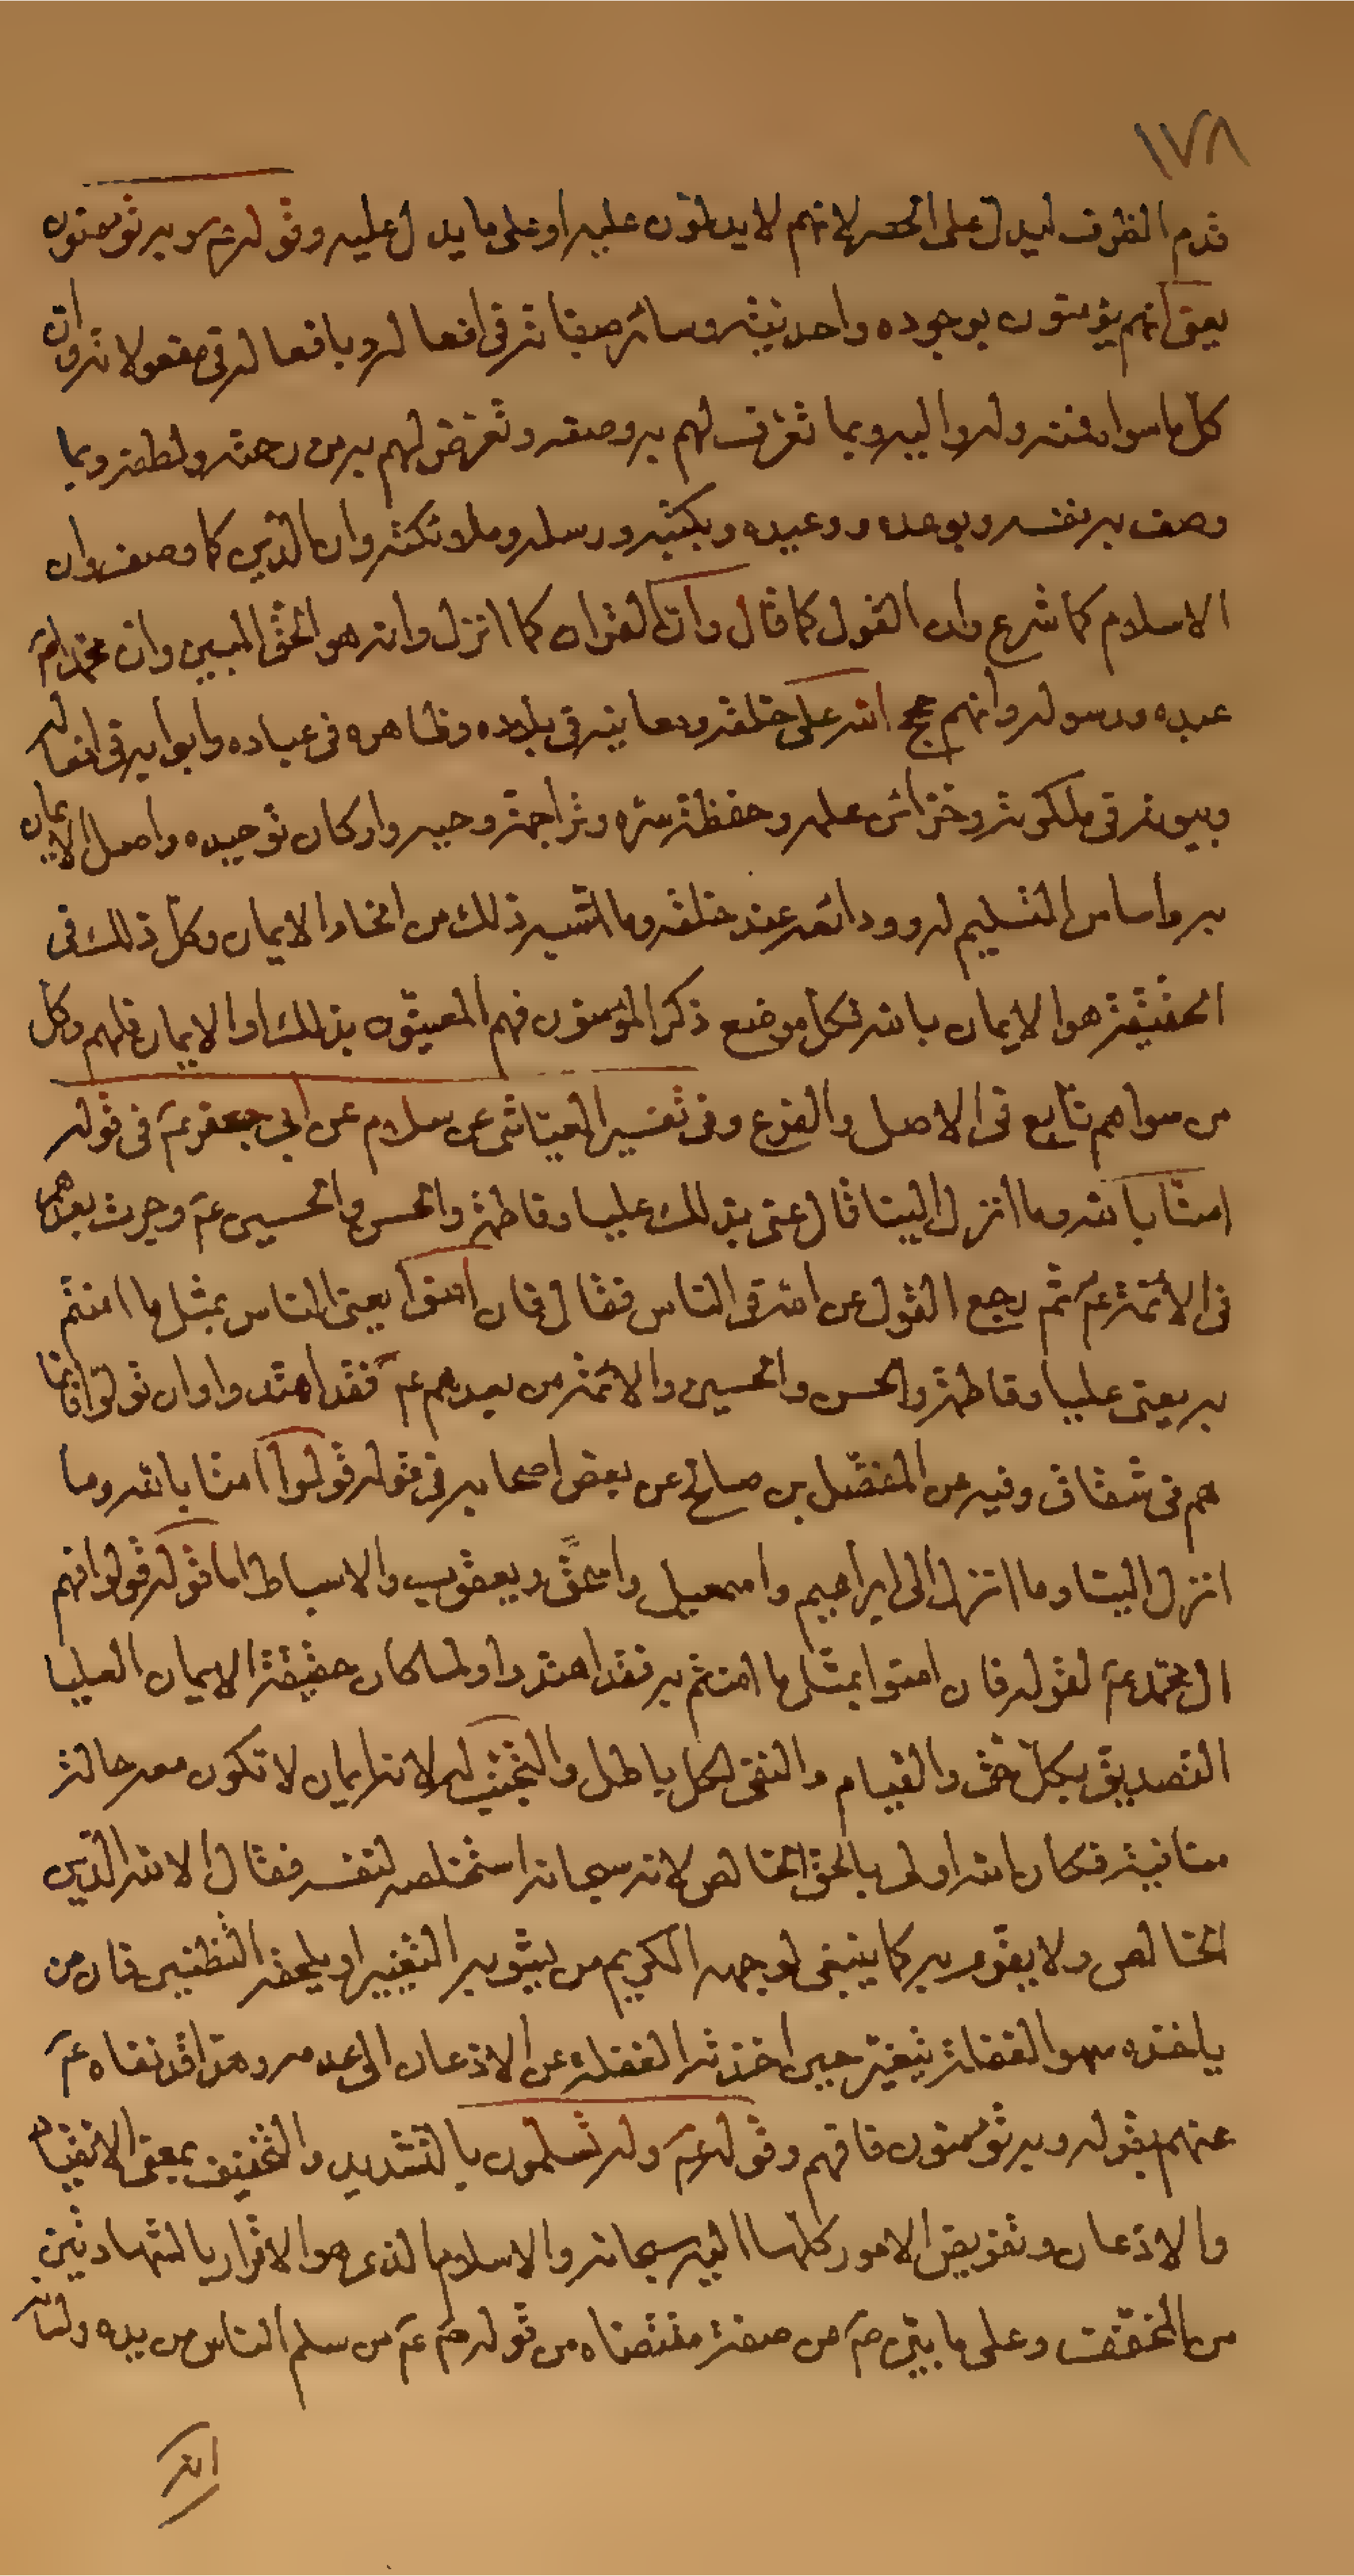 ١٧٨
قدم الظرف ليدل على الحصر لانهم لا يدلون عليه او على ما يدل عليه وقوله عم وبه تؤمنون
يعنى انهم يؤمنون بوجوده واحديته وسائر صفاته فى افعاله وبافعاله فى مفعولاته وان
كل ما سواه فمنه وله واليه وبما تعرف لهم به وصفه وتعرض لهم به من رحمته ولطفه وبما
وصف به نفسه وبوعده ووعيده وبكتبه ورسله وملائكته وان الدين كما وصف وان
الاسلام كما شرع وان القول كما قال وان القران كما انزل وانه هو الحق المبين وان محمدا ص
عبده ورسوله وانهم حجج الله على خلقه ومعانيه فى بلاده وظاهره فى عباده وابوابه فى افعاله
وبيوته فى ملكوته وخزائن علمه وحفظة سره وتراجمة وحيه واركان توحيده واصل الايمان
به واساس التسليم له وودائعه عند خلقه وما اشبه ذلك من انحاء الايمان وكل ذلك فى
الحقيقة هو الايمان بالله فكل موضع ذكر المؤمنون فهم المعنيون بذلك او الايمان فلهم وكل
من سواهم تابع فى الاصل والفرع وفى تفسير العياشى عن سلام عن ابى جعفر عم فى قوله
امنا بالله وما انزل الينا قال عنى بذلك عليا وفاطمة والحسن والحسين عم وجرت بعدهم
فى الأئمة عم ثم رجع القول من الله فى الناس فقال فان امنوا يعنى الناس بمثل ما امنتم
به يعنى عليا وفاطمة والحسن والحسين والائمة من بعدهم عم فقد اهتدوا وان تولوا فانما
هم فى شقاق وفيه عن المفضل بن صالح عن بعض اصحابه فى قوله قولوا امنا بالله وما
انزل الينا وما انزل الى ابراهيم واسمعيل واسحق ويعقوب والاسباط اما قوله قولوا فهم
ال محمد عم لقوله فان امنوا بمثل ما امنتم به فقد اهتدوا ولما كان حقيقة الايمان العليا
التصديق بكل حق والقيام والنفى لكل باطل والتجنب له لانه ايمان لا تكون معه حالة
منافية فكان الله اولى بالحق الخالص لانه سبحانه استخلصه لنفسه فقال الا لله الدين
الخالص ولا يقوم به كما ينبغى لوجهه الكريم من يشوبه التغيير او يلحقه فان من
ياخذه سهو الغفلة يتغير حين اخذته الغفلة عن الاذعان الى عدمه وهذا قد نفاه عم
عنهم بقوله وبه تؤمنون فافهم وقوله عم وله تسلمون بالتشديد والتخفيف بمعنى الانقياد
والاذعان وتفويض الامور كلها اليه سبحانه والاسلام الذى هو الاقرار بالشهادتين
من المخفف وعلى ما بين ص من صفة مقتضاه من قوله ص عم من سلم الناس من يده ولسانه